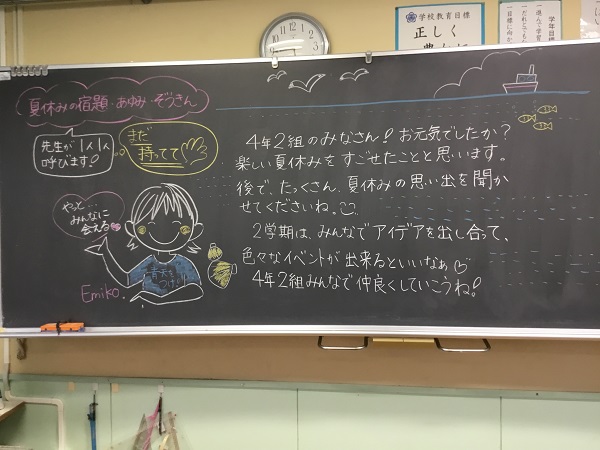 学校教育目標
正しく
学年目標
夏休みの宿題・あゆみ・ぞうきん
先生が1人1人
呼びます!
まだ
持ってて
やっと…
みんなに
会える
Emiko.
4年2組のみなさん!お元気でしたか?
楽しい夏休みをすごせたことと思います。
後で、たっくさん、夏休みの思い出を聞か
せてくださいね。
2学期は、みんなでアイデアを出し合って、
色々なイベントが出来るといいなぁ♡
4年2組みんなで仲良くしていこうね!